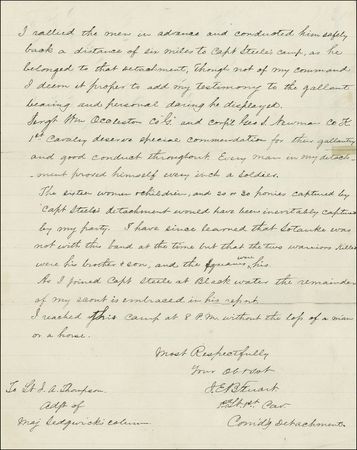 I rallied the men in advance and conducted him safely
back a distance of six miles to Capt Steele's camp, as he
belonged to that detachment, though not of my command
I deem it proper to add my testimony to the gallant
bearing and personal daring he displayed.
Sergt Wm Occleston Co G. and corpl Geo S. Newman Co H
1st Cavalry deserve special commendation for their gallantry
and good conduct throughout. Every man in my detach-
ment proved himself every inch a soldier.
The sixteen women & children, and 20 or 30 ponies captured by
Capt Steele's detachment would have been inevitably captured
by my party. I have since learned that Satanke was
not with this band at the time but that the two warriors killed
were his brother & son, and the squaws were his.
As I joined Capt Steele at Black water the remainder
of my scout is embraced in his report
I reached this camp at 8 P.M. without the loss of a man
or a horse.
Most Respectfully
Your Ob svt
J.E.B. Stuart
1st Lt. 1st Cav
Comd'g detachment.
To Lt J. A. Thompson
Adjt of
Maj Sedgwick's column